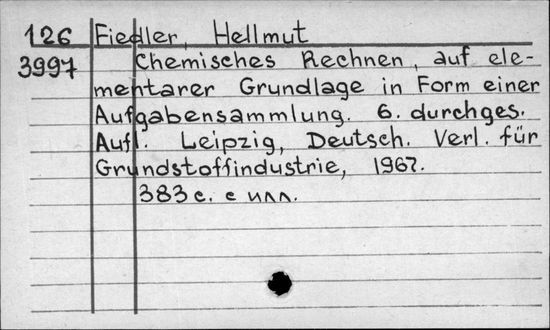 126 Fiedler, Hellmut
3997 Chemisches Rechnen, auf ele-
mentarer Grundlage in Form einer
Aufgabensammlung. 6. durchges.
Aufl. Leipzig, Deutsch. Verl. für
Grundstoffindustrie, 1967.
383 с. с илл.